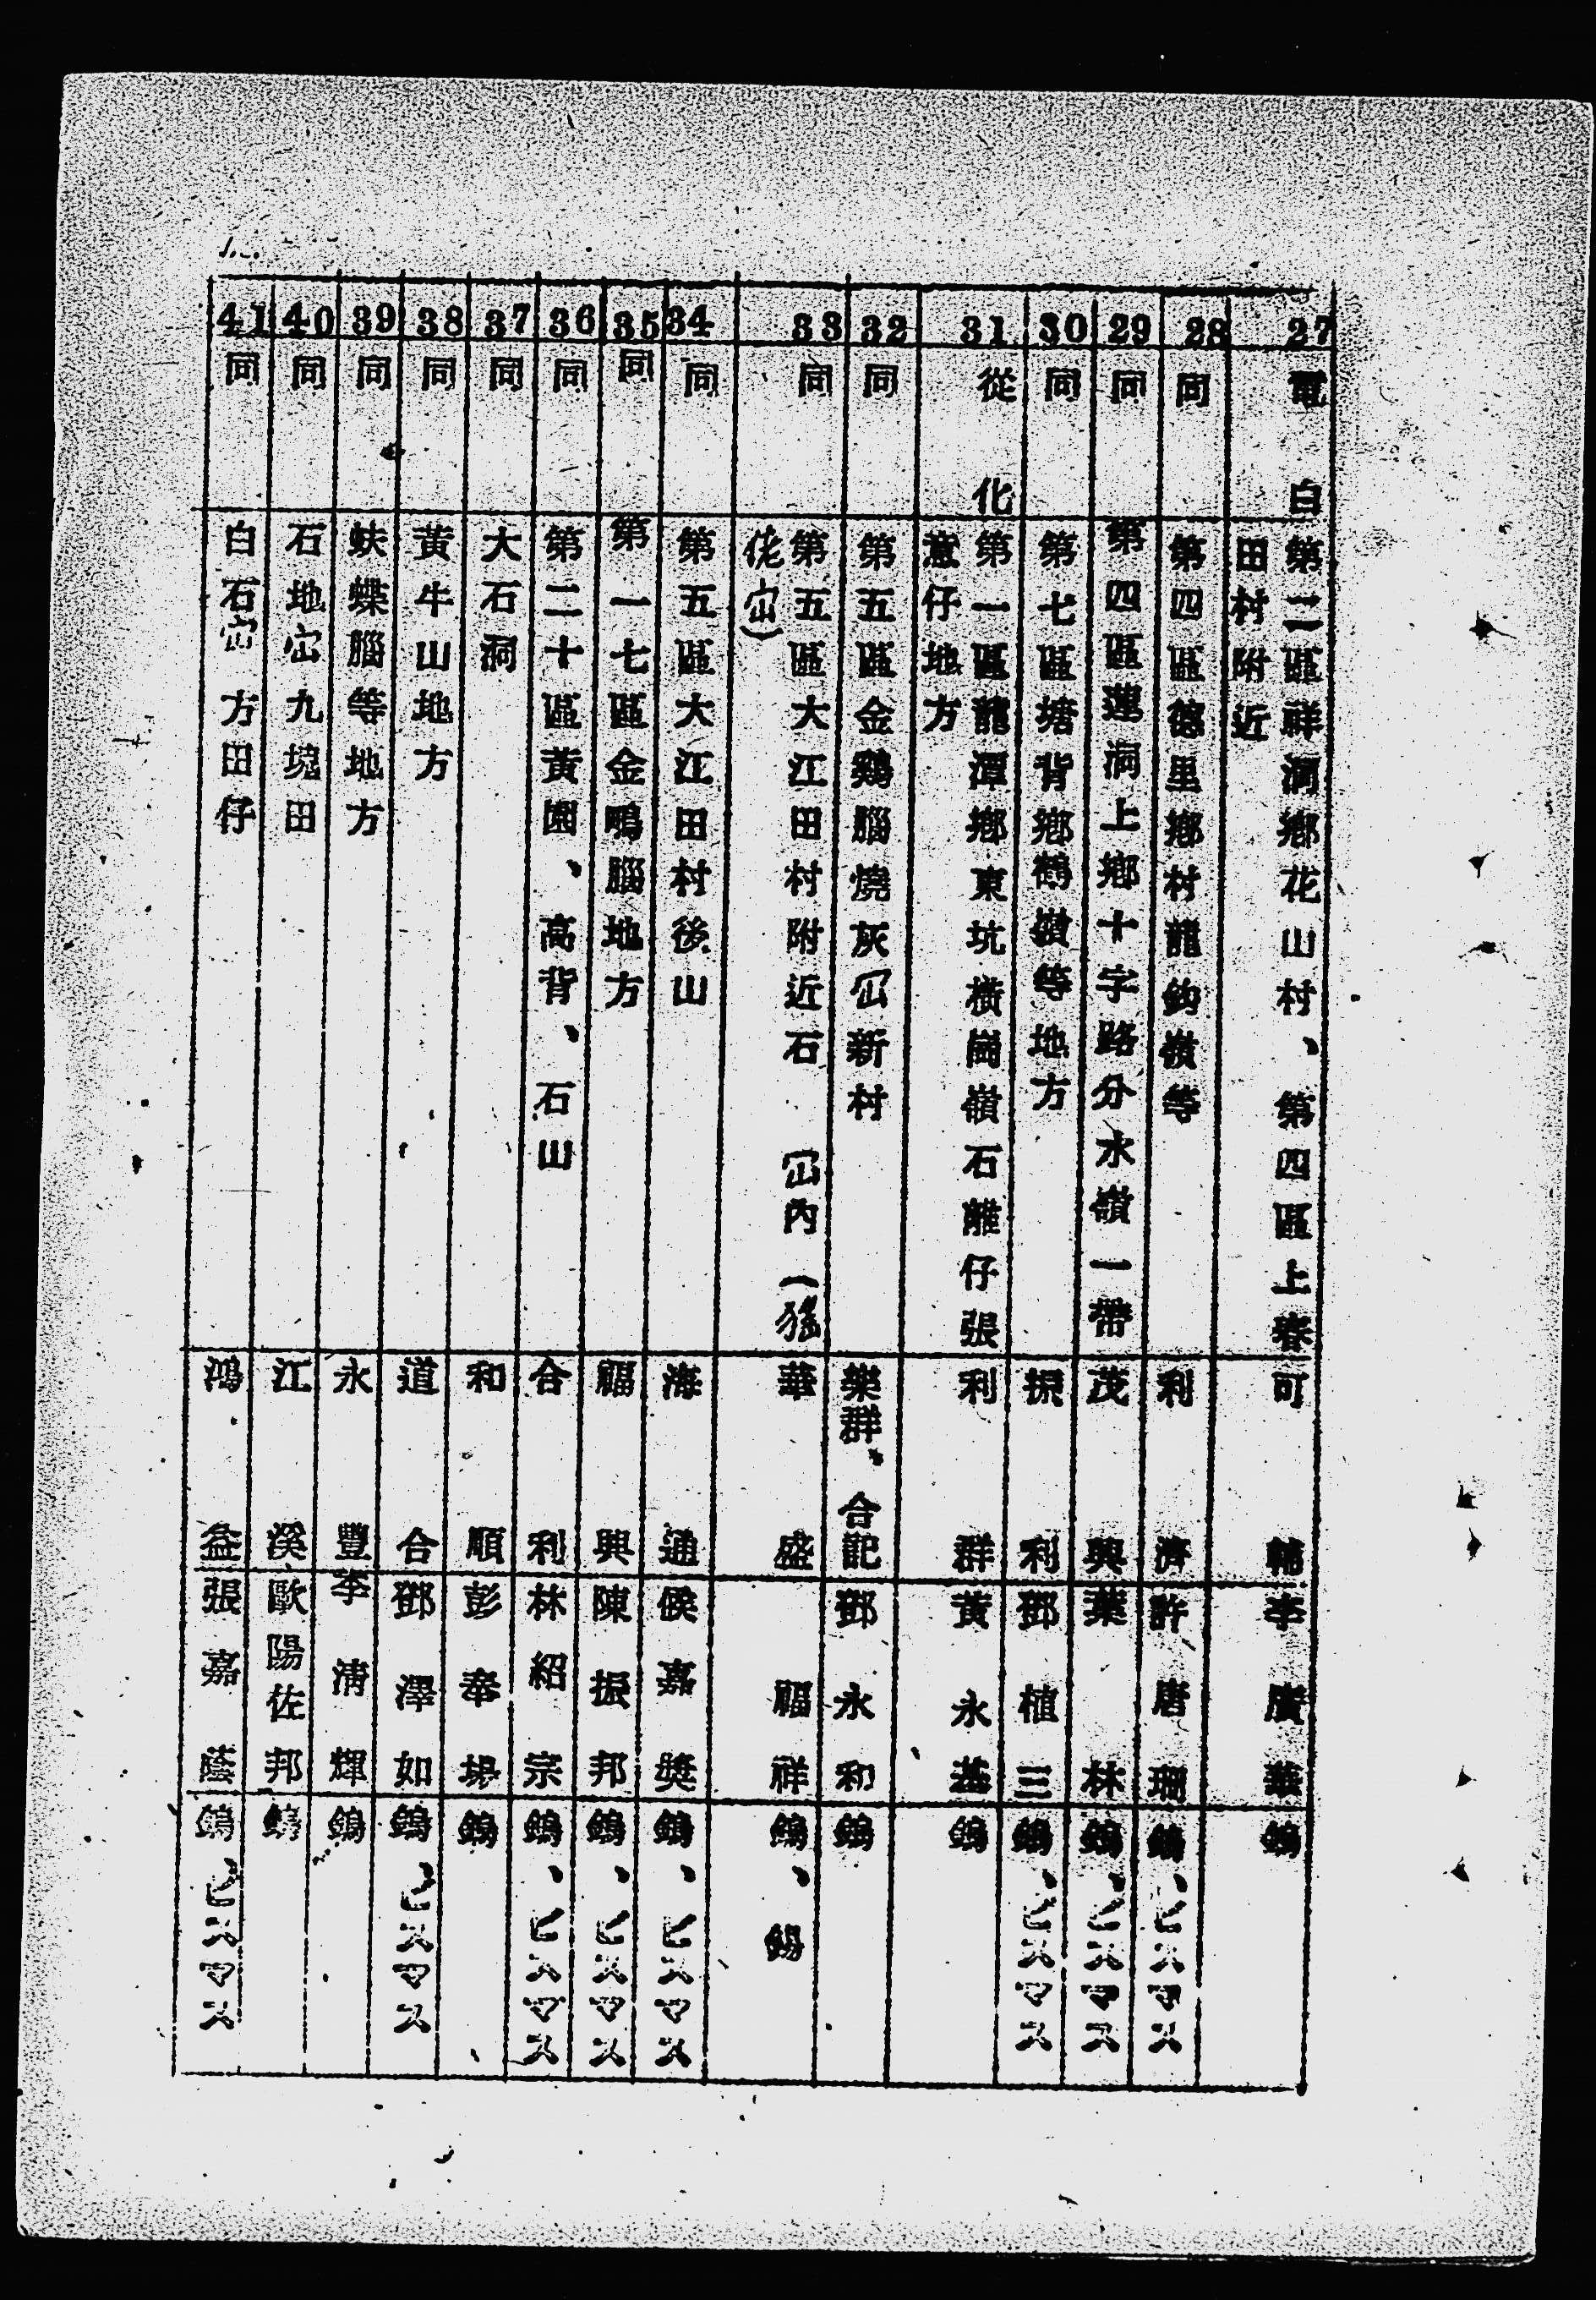 27 電白 第二區祥洞鄉花山村、第四區上春田村附近 可輔 李廣華 鎢
28 同 第四區德里鄉村龍鈎嶺等 利濟 許唐珊 鎢、ビスマス
29 同 第四區蓮洞上鄉十字路分水嶺一帶 茂興 葉林 鎢、ビスマス
30 同 第七區塘背鄉鶴嶺等地方 振利 鄧植三 鎢、ビスマス
31 從化 第一區龍潭鄉東坑橫崗嶺石離仔張意仔地方 利群 黃永基 鎢
32 同 第五區金鷄腦燒灰冚新村 樂群、合記 鄧永和 鎢
33 同 第五區大江田村附近石冚內(猺佬冚) 華盛 福祥 鎢、錫
34 同 第五區大江田村後山 海通 侯嘉奬 鎢、ビスマス
35 同 第一七區金鴨腦地方 福興 陳振邦 鎢、ビスマス
36 同 第二十區黃園、高背、石山 合利 林紹宗 鎢、ビスマス
37 同 大石洞 和順 彭奉 鎢
38 同 黃牛山地方 道合 鄧澤如 鎢、ビスマス
39 同 蚨蝶腦等地方 永豐 李淸輝 鎢
40 同 石地冚九塊田 江溪 歐陽佐邦 鎢
41 同 白石冚方田仔 鴻益 張嘉蔭 鎢、ビスマス